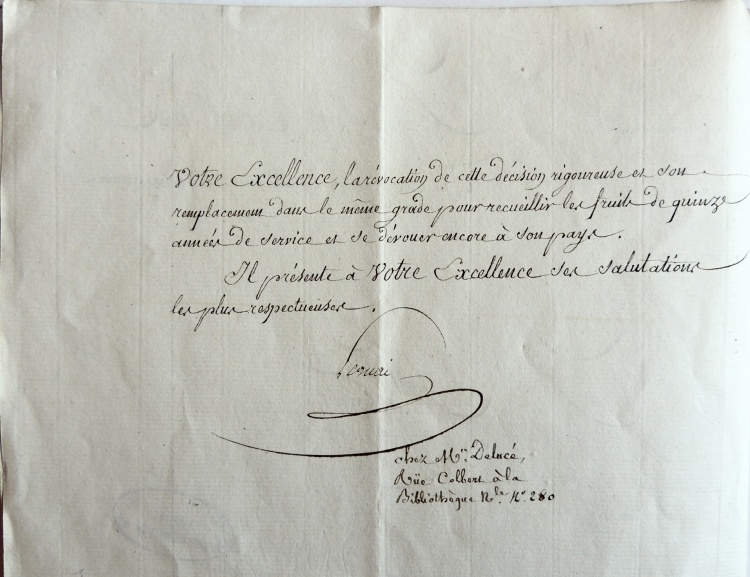 Votre Excellence, la révocation de cette décision rigoureuse et son
remplacement dans le même grade pour recueillir les fruits de quinze
années de service et se dévouer encore à son pays.
Il présente à Votre Excellence ses salutations
les plus respectueuses.
chez Mr. Delucé,
Rüe Colbert à la
Bibliothèque Nle. No. 280